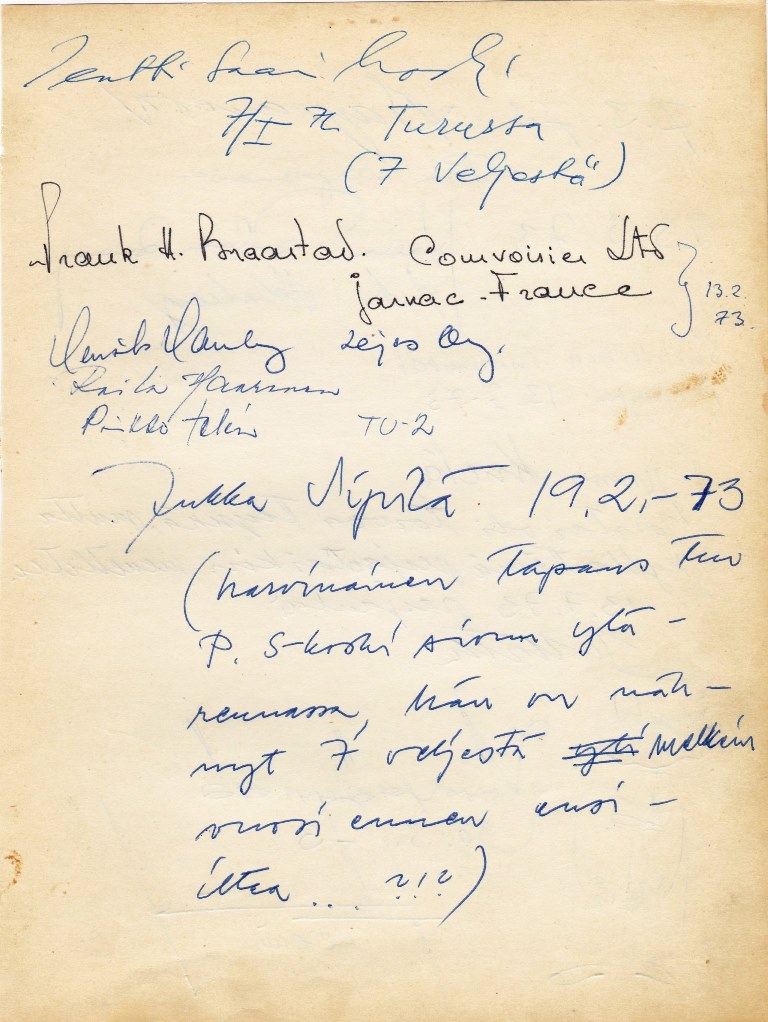 Pentti Saarikoski
7/I 72 Turussa
(7 Veljestä")
Frank H. Braastad. Courvoisier LTD
Jarnac - France
13.2.
73.
Raila
Pirkko TU-2
Jukka Sipilä 19.2.-73
(harvinainen tapaus tuo
P. S-koski sivun ylä-
reunassa, hän on näh-
nyt 7 veljestä melkein
vuosi ennen ensi-
iltaa ... ?!?)